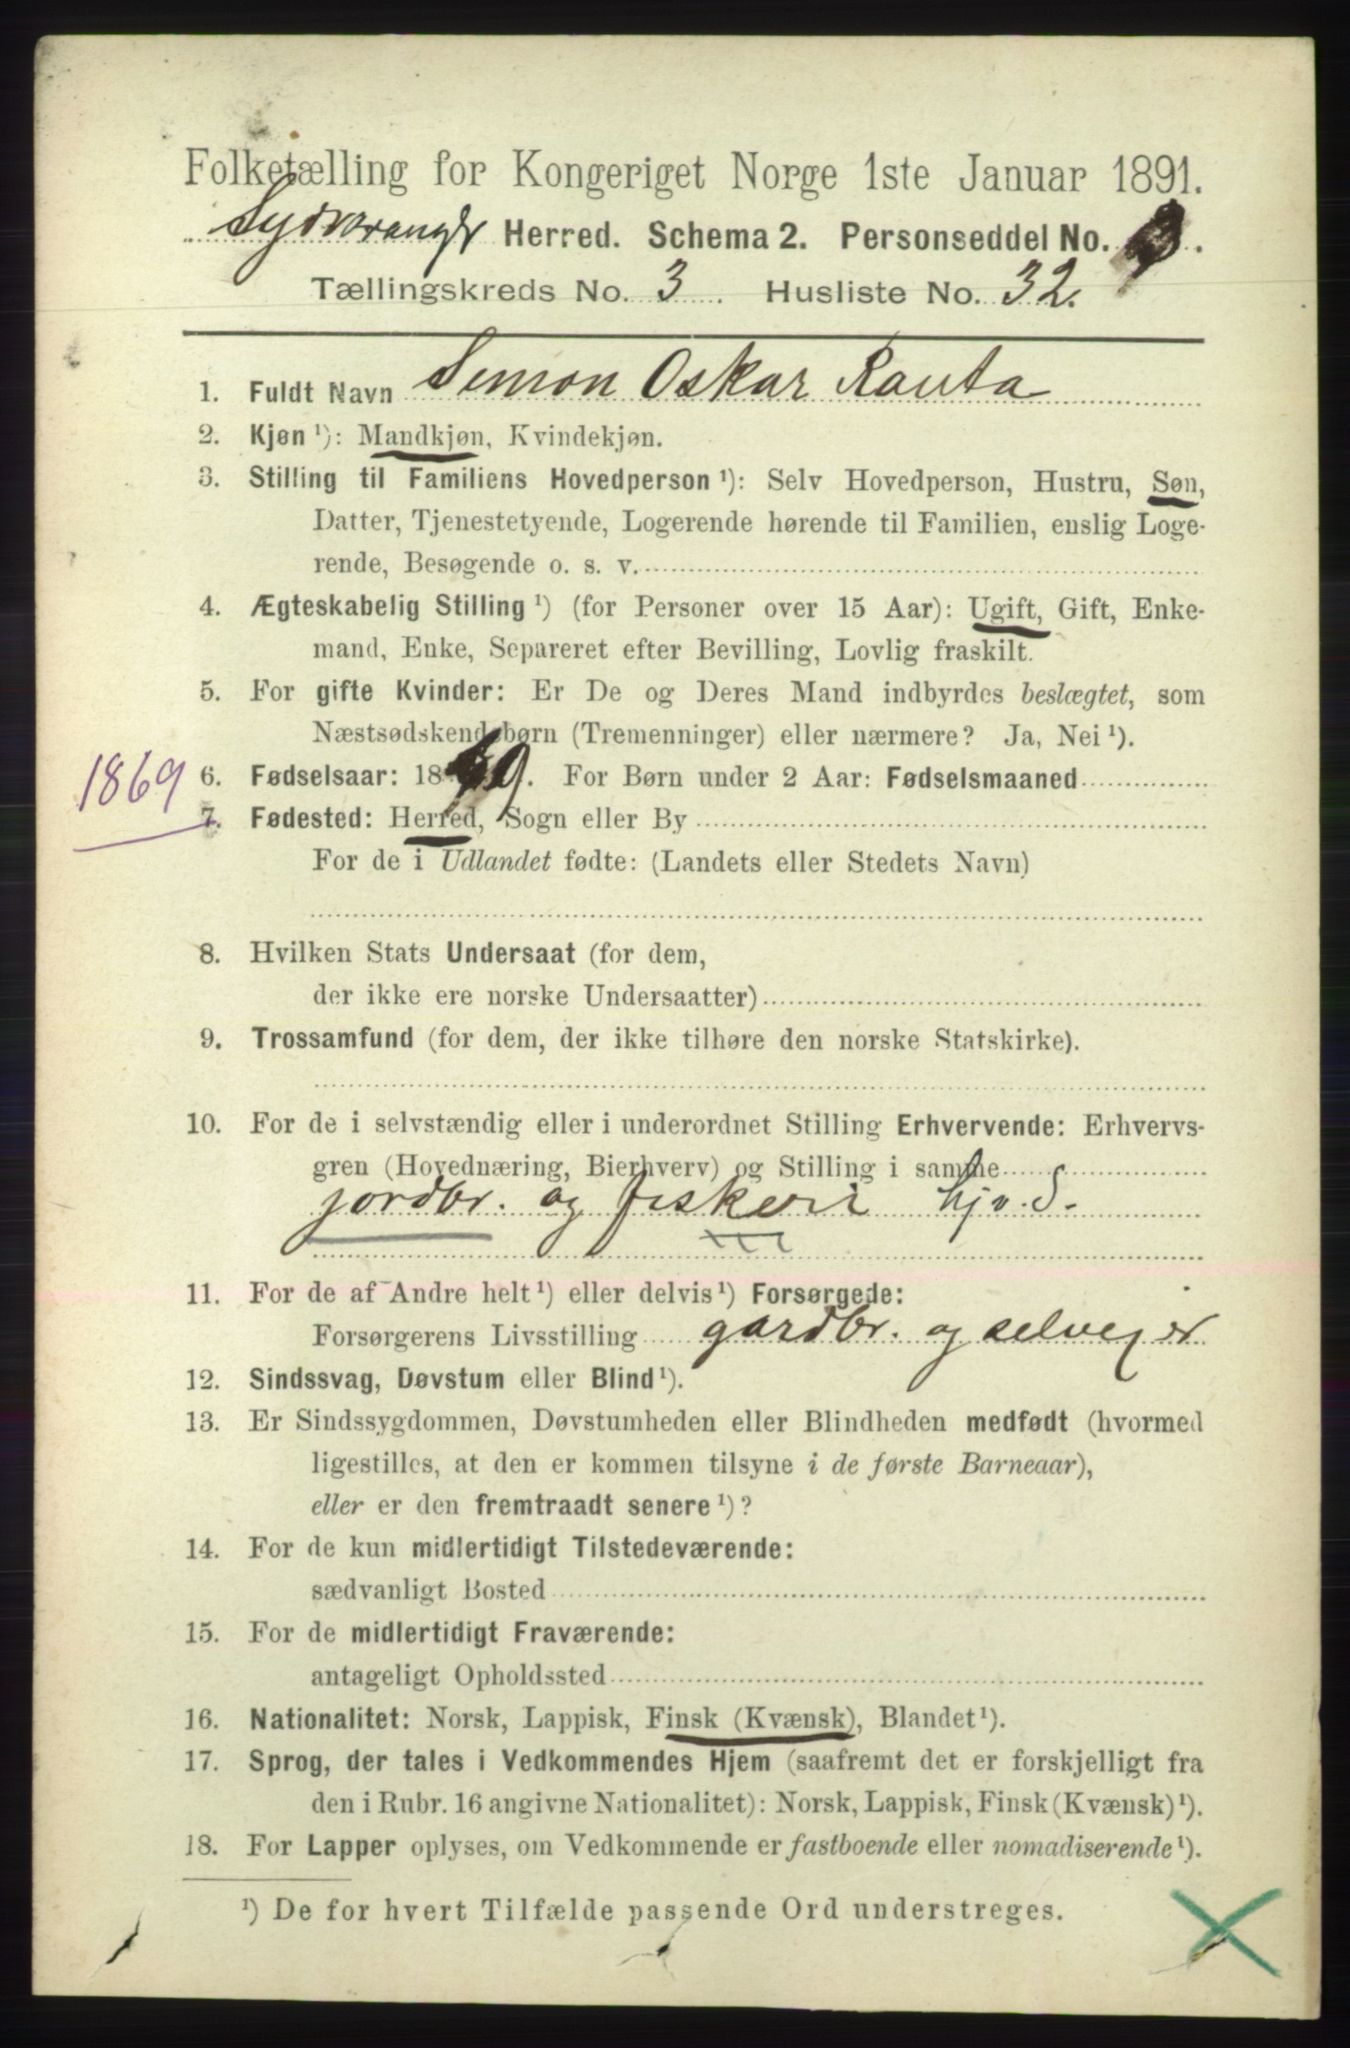 Folketælling for Kongeriget Norge 1ste Januar 1891.
Sydvaranger Herred. Schema 2. Personseddel No. 3.
Tællingskreds No. 3. Husliste No. 32.
1. Fuldt Navn Simon Oskar Rauta
2. Kjøn ¹): Mandkjøn, Kvindekjøn.
3. Stilling til Familiens Hovedperson ¹): Selv Hovedperson, Hustru, Søn,
Datter, Tjenestetyende, Logerende hørende til Familien, enslig Loge-
rende, Besøgende o. s. v.
4. Ægteskabelig Stilling ¹) (for Personer over 15 Aar): Ugift, Gift, Enke-
mand, Enke, Separeret efter Bevilling, Lovlig fraskilt.
5. For gifte Kvinder: Er De og Deres Mand indbyrdes beslægtet, som
Næstsødskendebørn (Tremenninger) eller nærmere? Ja, Nei ¹).
1869
6. Fødselsaar: 1869. For Børn under 2 Aar: Fødselsmaaned
7. Fødested: Herred, Sogn eller By
For de i Udlandet fødte: (Landets eller Stedets Navn)
8. Hvilken Stats Undersaat (for dem,
der ikke ere norske Undersaatter)
9. Trossamfund (for dem, der ikke tilhøre den norske Statskirke).
10. For de i selvstændig eller i underordnet Stilling Erhvervende: Erhvervs-
gren (Hovednæring, Bierhverv) og Stilling i samme
jordbr. og fiskeri hjv. S.
11. For de af Andre helt ¹) eller delvis ¹) Forsørgede:
Forsørgerens Livsstilling gardbr. og selvejer
12. Sindssvag, Døvstum eller Blind ¹).
13. Er Sindssygdommen, Døvstumheden eller Blindheden medfødt (hvormed
ligestilles, at den er kommen tilsyne i de første Barneaar),
eller er den fremtraadt senere ¹)?
14. For de kun midlertidigt Tilstedeværende:
sædvanligt Bosted
15. For de midlertidigt Fraværende:
antageligt Opholdssted
16. Nationalitet: Norsk, Lappisk, Finsk (Kvænsk), Blandet ¹).
17. Sprog, der tales i Vedkommendes Hjem (saafremt det er forskjelligt fra
den i Rubr. 16 angivne Nationalitet): Norsk, Lappisk, Finsk (Kvænsk) ¹).
18. For Lapper oplyses, om Vedkommende er fastboende eller nomadiserende ¹).
¹) De for hvert Tilfælde passende Ord understreges.